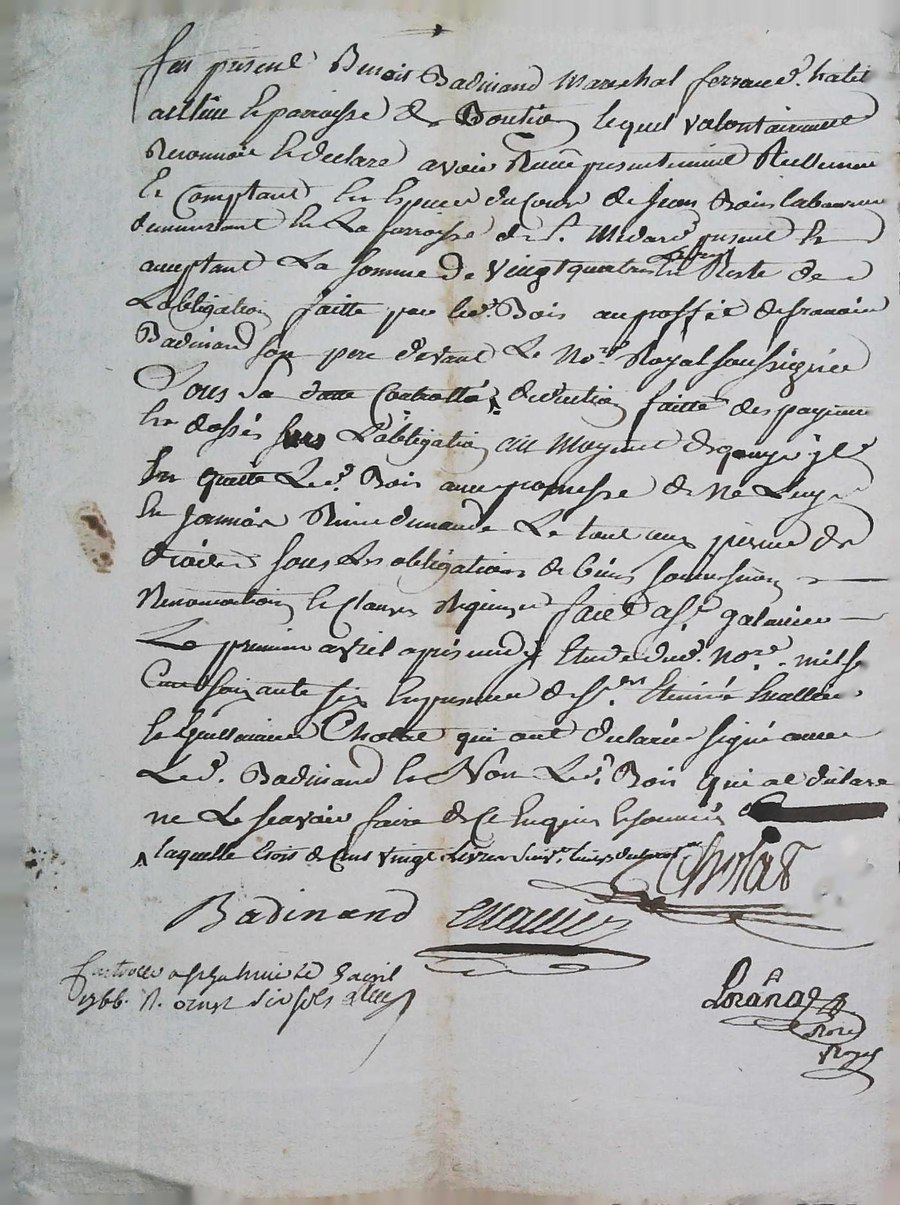 fut présent Benoit Badinand Marechal ferrand habit
de la parroisse de lequel volontairement
Reconnoit et declare avoir Reçu presentement Réellement
et Comptant en Espece du Cour de Jean Bois laboureur
demeurant en La parroisse de St. Medard présent et
acceptant La somme de vingt quatre Livres Reste de
L'obligation faitte par led. Bois au proffit de francois
Badinand son pere devant Le Nore. Royal soussigné
sous sa datte Controllé, deduction faitte des payemens
en dossés sur L'obligation au Moyent de quoy il
en quitte Led. Bois avec promesse de Ne Luy
en jamais Rien demander Le tout aux peines de
droit sous Les obligations de biens soumissions
Renonciations et Clauses Requises fait a St. galmier
Le premier avril après midy Etude dud. Nore. mil sept
Cent soixante six En presence de Sr. Etienne
et Guillaume Cholat qui ont declaré signé avec
Led. Badinand et Non Led. Bois qui a declaré
ne Le sçavoir faire de Ce Enquis et sommé
laquelle trois de Cent vingt Livres
Cholat
Badinand
Controllé a St galmier Le avril
1766. R. onze sols
Loranad
Nore
Royal